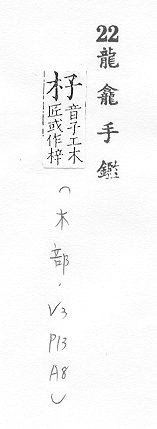 22龍龕手鑑
杍音子工木匠或作梓
(木部.V3P13A8)